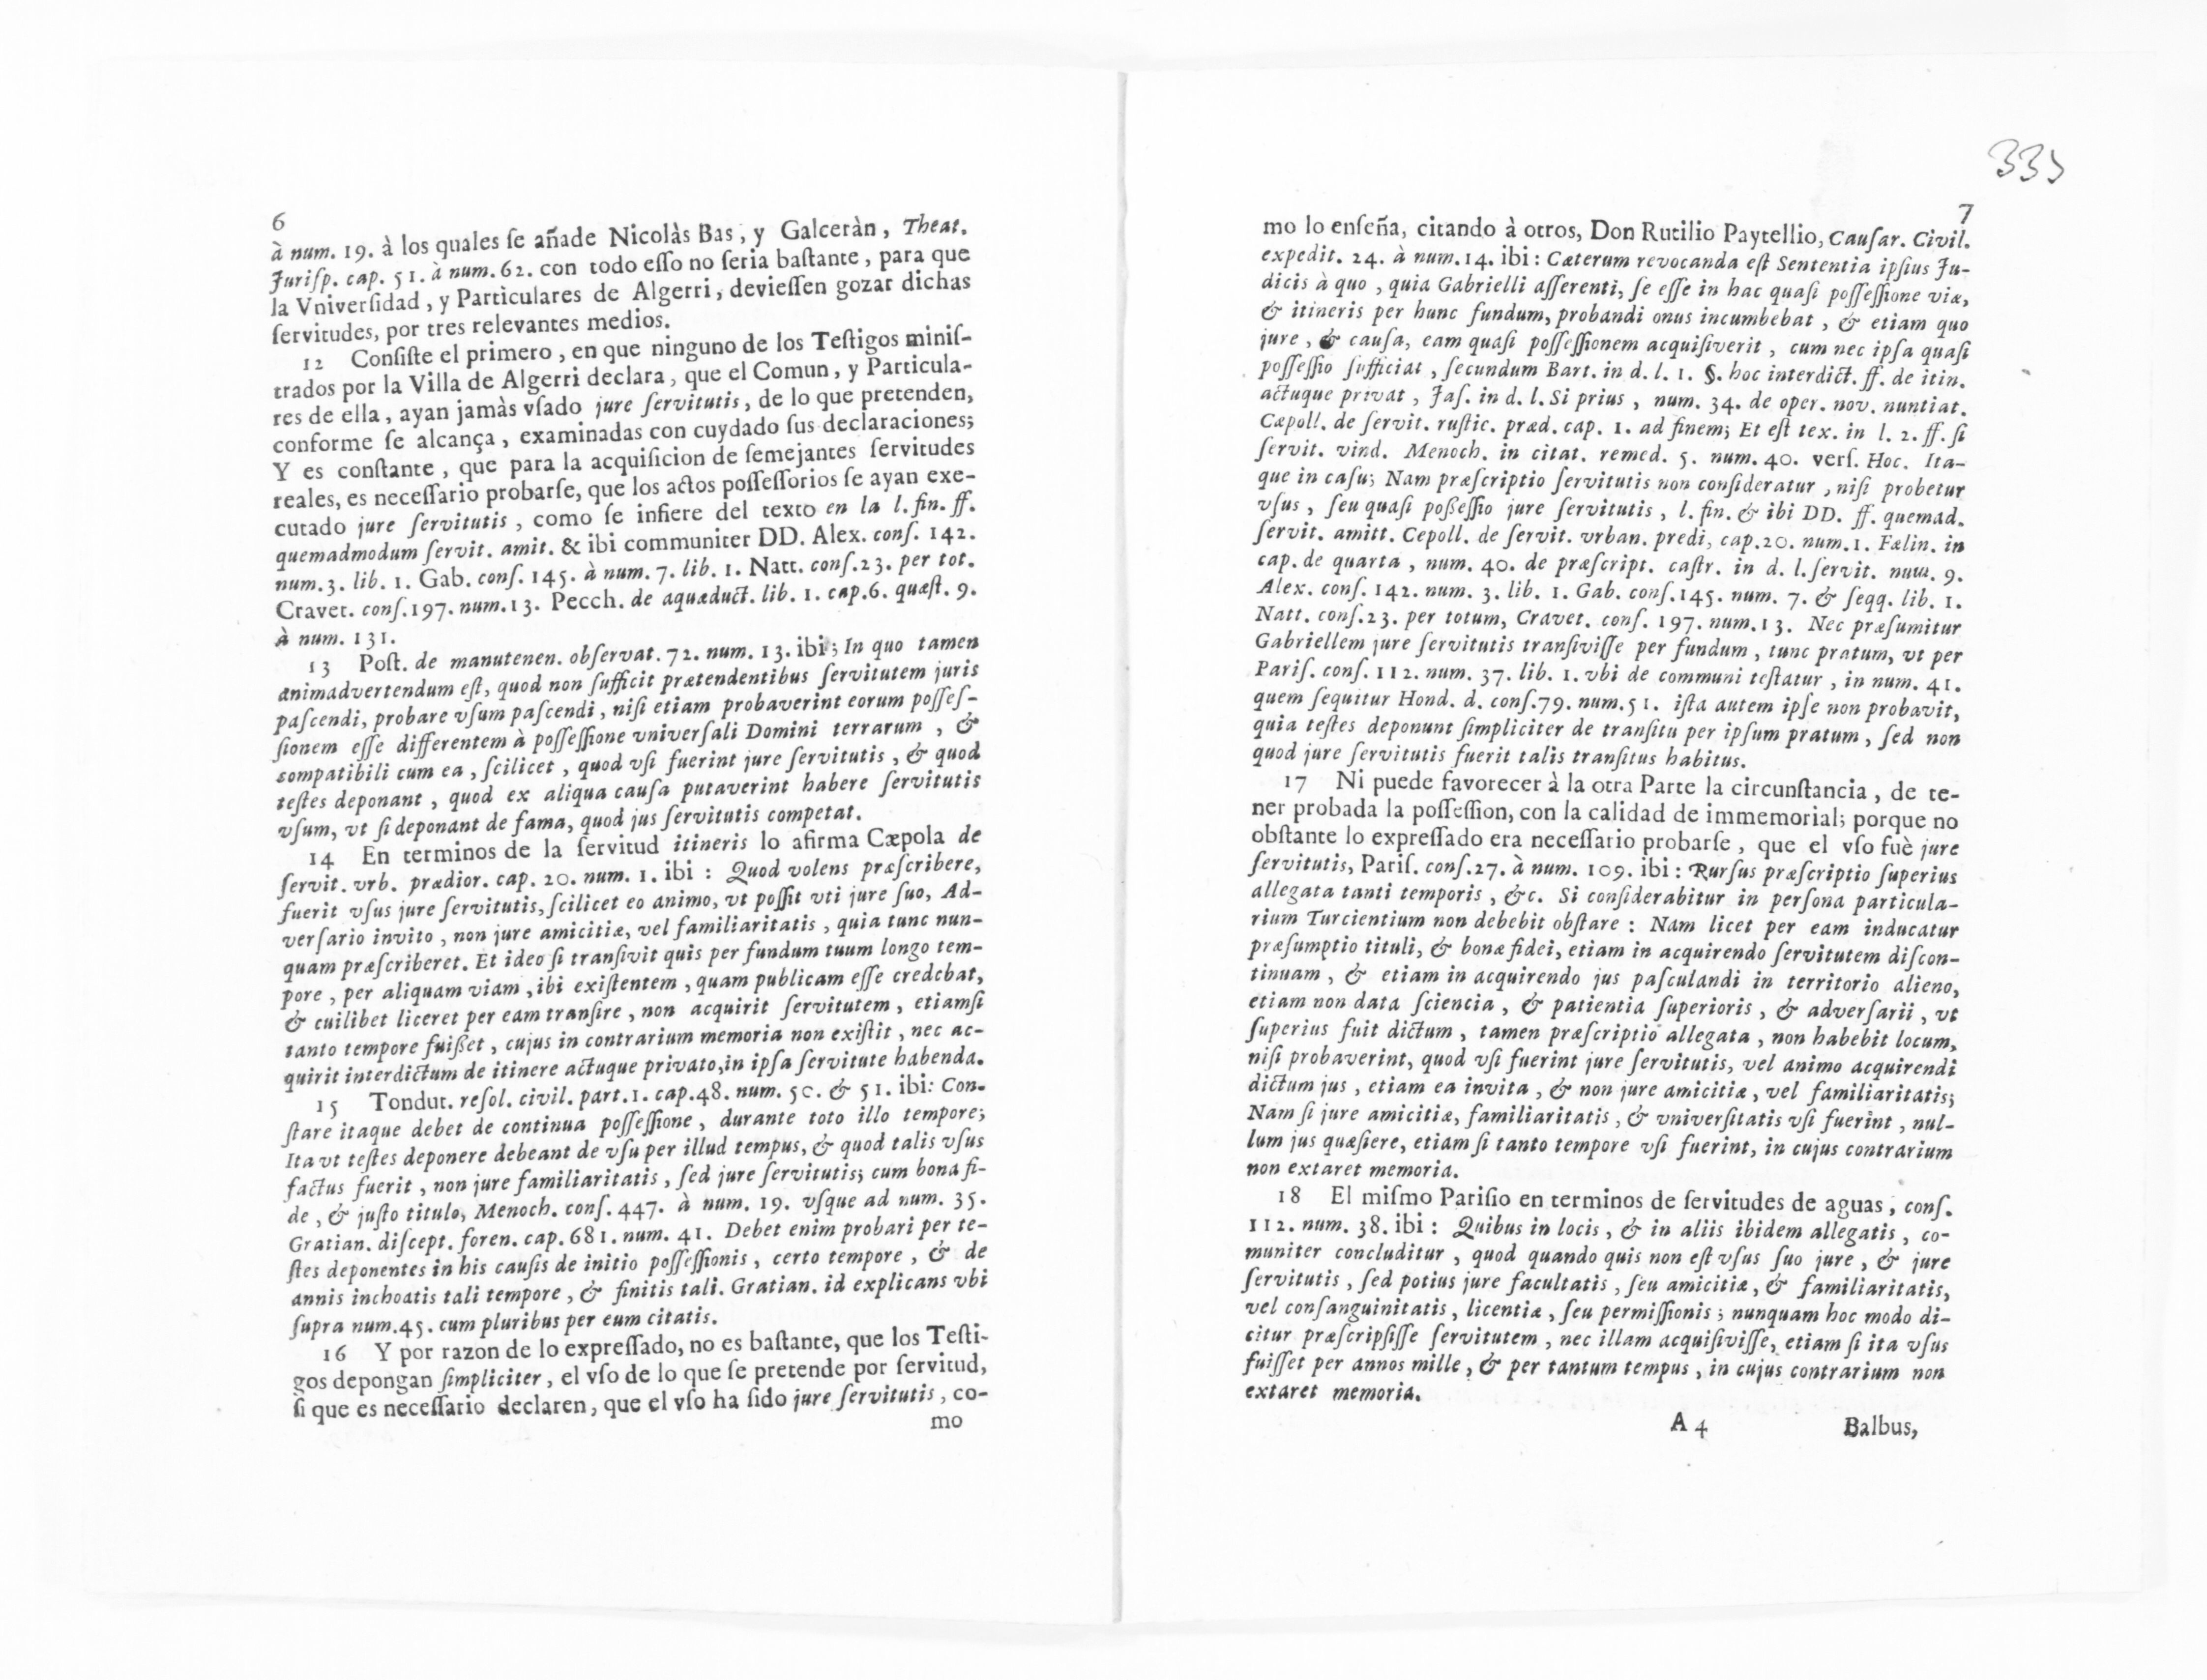 6
à num. 19. à los quales ſe añade Nicolàs Bas, y Galceràn, Theat.
Juriſp. cap. 51. à num. 62. con todo eſſo no ſeria baſtante, para que
la Vniverſidad, y Particulares de Algerri, devieſſen gozar dichas
ſervitudes, por tres relevantes medios.
12 Conſiſte el primero, en que ninguno de los Teſtigos miniſ-
trados por la Villa de Algerri declara, que el Comun, y Particula-
res de ella, ayan jamàs vſado jure ſervitutis, de lo que pretenden,
conforme ſe alcança, examinadas con cuydado ſus declaraciones;
Y es conſtante, que para la acquiſicion de ſemejantes ſervitudes
reales, es neceſſario probarſe, que los actos poſſeſſorios ſe ayan exe-
cutado jure ſervitutis, como ſe infiere del texto en la l. fin. ff.
quemadmodum ſervit. amit. & ibi communiter DD. Alex. conſ. 142.
num. 3. lib. 1. Gab. conſ. 145. à num. 7. lib. 1. Natt. conſ. 23. per tot.
Cravet. conſ. 197. num. 13. Pecch. de aquæduct. lib. 1. cap. 6. quæſt. 9.
à num. 131.
13 Poſt. de manutenen. obſervat. 72. num. 13. ibi; In quo tamen
animadvertendum eſt, quod non ſufficit prætendentibus ſervitutem juris
paſcendi, probare vſum paſcendi, niſi etiam probaverint eorum poſſeſ-
ſionem eſſe differentem à poſſeſſione vniverſali Domini terrarum, &
compatibili cum ea, ſcilicet, quod vſi fuerint jure ſervitutis, & quod
teſtes deponant, quod ex aliqua cauſa putaverint habere ſervitutis
vſum, vt ſi deponant de fama, quod jus ſervitutis competat.
14 En terminos de la ſervitud itineris lo afirma Cæpola de
ſervit. vrb. prædior. cap. 20. num. 1. ibi: Quod volens præſcribere,
fuerit vſus jure ſervitutis, ſcilicet eo animo, vt poſſit vti jure ſuo, Ad-
verſario invito, non jure amicitiæ, vel familiaritatis, quia tunc nun-
quam præſcriberet. Et ideo ſi tranſivit quis per fundum tuum longo tem-
pore, per aliquam viam, ibi exiſtentem, quam publicam eſſe credebat,
& cuilibet liceret per eam tranſire, non acquirit ſervitutem, etiamſi
tanto tempore fuißet, cujus in contrarium memoria non exiſtit, nec ac-
quirit interdictum de itinere actuque privato, in ipſa ſervitute habenda.
15 Tondut. reſol. civil. part. 1. cap. 48. num. 50. & 51. ibi: Con-
ſtare itaque debet de continua poſſeſſione, durante toto illo tempore;
Ita vt teſtes deponere debeant de vſu per illud tempus, & quod talis vſus
factus fuerit, non jure familiaritatis, ſed jure ſervitutis; cum bona fi-
de, & juſto titulo, Menoch. conſ. 447. à num. 19. vſque ad num. 35.
Gratian. diſcept. foren. cap. 681. num. 41. Debet enim probari per te-
ſtes deponentes in his cauſis de initio poſſeſſionis, certo tempore, & de
annis inchoatis tali tempore, & finitis tali. Gratian. id explicans vbi
ſupra num. 45. cum pluribus per eum citatis.
16 Y por razon de lo expreſſado, no es baſtante, que los Teſti-
gos depongan ſimpliciter, el vſo de lo que ſe pretende por ſervitud,
ſi que es neceſſario declaren, que el vſo ha ſido jure ſervitutis, co-
mo
333
7
mo lo enſeña, citando à otros, Don Rutilio Paytellio, Cauſar. Civil.
expedit. 24. à num. 14. ibi: Cæterum revocanda eſt Sententia ipſius Ju-
dicis à quo, quia Gabrielli aſſerenti, ſe eſſe in hac quaſi poſſeſſione viæ,
& itineris per hunc fundum, probandi onus incumbebat, & etiam quo
jure, & cauſa, eam quaſi poſſeſſionem acquiſiverit, cum nec ipſa quaſi
poſſeſſio ſufficiat, ſecundum Bart. in d. l. 1. §. hoc interdict. ff. de itin.
actuque privat, Jaſ. in d. l. Si prius, num. 34. de oper. nov. nuntiat.
Cæpoll. de ſervit. ruſtic. præd. cap. 1. ad finem; Et eſt tex. in l. 2. ff. ſi
ſervit. vind. Menoch. in citat. remed. 5. num. 40. verſ. Hoc. Ita-
que in caſu; Nam præſcriptio ſervitutis non conſideratur, niſi probetur
vſus, ſeu quaſi poßeſſio jure ſervitutis, l. fin. & ibi DD. ff. quemad.
ſervit. amitt. Cepoll. de ſervit. vrban. predi, cap. 20. num. 1. Fælin. in
cap. de quarta, num. 40. de præſcript. caſtr. in d. l. ſervit. num. 9.
Alex. conſ. 142. num. 3. lib. 1. Gab. conſ. 145. num. 7. & ſeqq. lib. 1.
Natt. conſ. 23. per totum, Cravet. conſ. 197. num. 13. Nec præſumitur
Gabriellem jure ſervitutis tranſiviſſe per fundum, tunc pratum, vt per
Pariſ. conſ. 112. num. 37. lib. 1. vbi de communi teſtatur, in num. 41.
quem ſequitur Hond. d. conſ. 79. num. 51. iſta autem ipſe non probavit,
quia teſtes deponunt ſimpliciter de tranſitu per ipſum pratum, ſed non
quod jure ſervitutis fuerit talis tranſitus habitus.
17 Ni puede favorecer à la otra Parte la circunſtancia, de te-
ner probada la poſſeſſion, con la calidad de immemorial; porque no
obſtante lo expreſſado era neceſſario probarſe, que el vſo fuè jure
ſervitutis, Pariſ. conſ. 27. à num. 109. ibi: Rurſus præſcriptio ſuperius
allegata tanti temporis, &c. Si conſiderabitur in perſona particula-
rium Turcientium non debebit obſtare: Nam licet per eam inducatur
præſumptio tituli, & bonæ fidei, etiam in acquirendo ſervitutem diſcon-
tinuam, & etiam in acquirendo jus paſculandi in territorio alieno,
etiam non data ſciencia, & patientia ſuperioris, & adverſarii, vt
ſuperius fuit dictum, tamen præſcriptio allegata, non habebit locum,
niſi probaverint, quod vſi fuerint jure ſervitutis, vel animo acquirendi
dictum jus, etiam ea invita, & non jure amicitiæ, vel familiaritatis;
Nam ſi jure amicitiæ, familiaritatis, & vniverſitatis vſi fuerint, nul-
lum jus quæſiere, etiam ſi tanto tempore vſi fuerint, in cujus contrarium
non extaret memoria.
18 El miſmo Pariſio en terminos de ſervitudes de aguas, conſ.
112. num. 38. ibi: Quibus in locis, & in aliis ibidem allegatis, co-
muniter concluditur, quod quando quis non eſt vſus ſuo jure, & jure
ſervitutis, ſed potius jure facultatis, ſeu amicitiæ, & familiaritatis,
vel conſanguinitatis, licentiæ, ſeu permiſſionis; nunquam hoc modo di-
citur præſcripſiſſe ſervitutem, nec illam acquiſiviſſe, etiam ſi ita vſus
fuiſſet per annos mille, & per tantum tempus, in cujus contrarium non
extaret memoria.
A 4 Balbus,